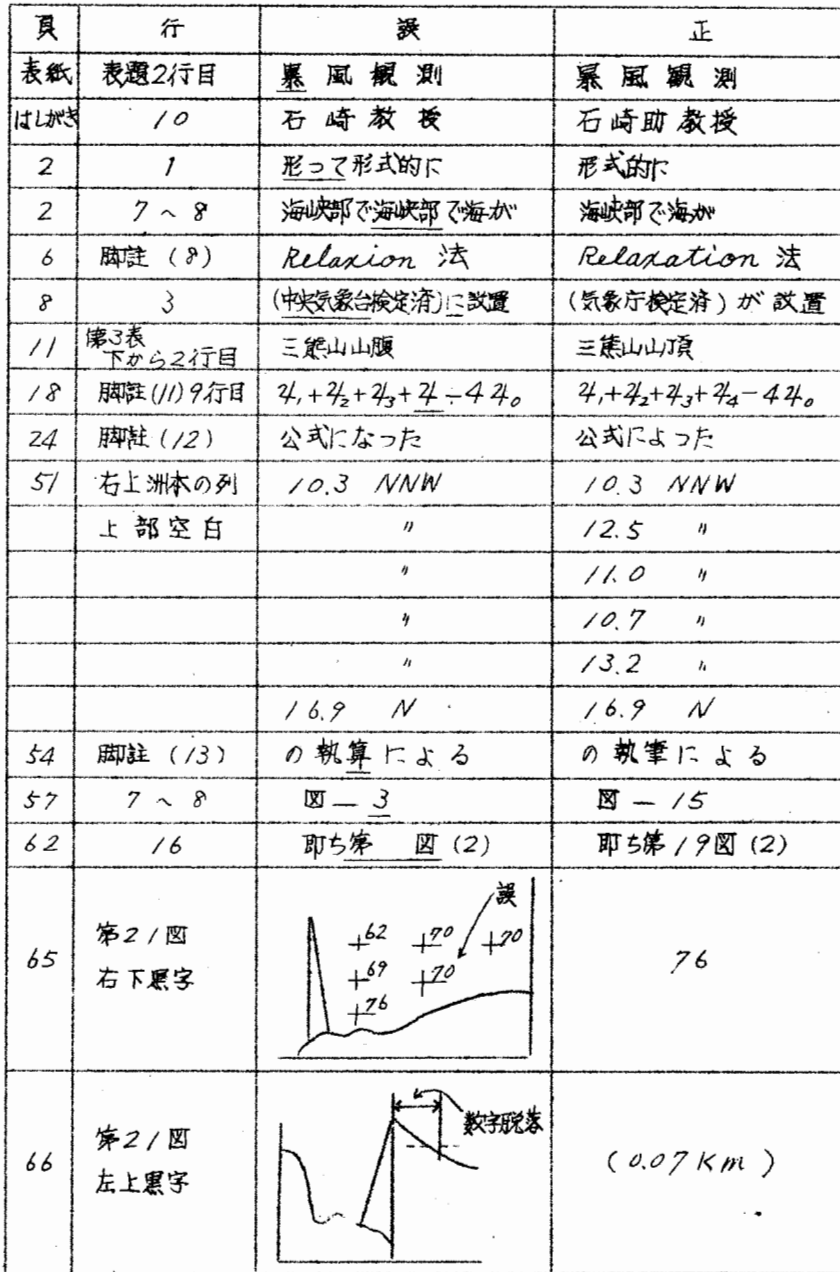 頁 行 誤 正
表紙 表題2行目 暴風観測 暴風観測
はしがき 10 石崎教授 石崎助教授
2 1 形って形式的に 形式的に
2 7~8 海峡部で海峡部で海が 海峡部で海が
6 脚註(8) Relaxion 法 Relaxation 法
8 3 (中央気象台検定済)に設置 (気象庁検定済)が設置
11 第3表 下から2行目 三熊山山腹 三熊山山頂
18 脚註(11)9行目 u₁+u₂+u₃+u÷4u₀ u₁+u₂+u₃+u₄-4u₀
24 脚註(12) 公式になった 公式によった
51 右上洲本の列 10.3 NNW 10.3 NNW
上部空白 〃 12.5 〃
〃 11.0 〃
〃 10.7 〃
〃 13.2 〃
16.9 N 16.9 N
54 脚註(13) の執算による の執筆による
57 7~8 図—3 図—15
62 16 即ち第 図(2) 即ち第19図(2)
65 第21図 右下黒字 76
誤
62 70 70
69 70
76
66 第21図 左上黒字 (0.07Km)
数字脱落